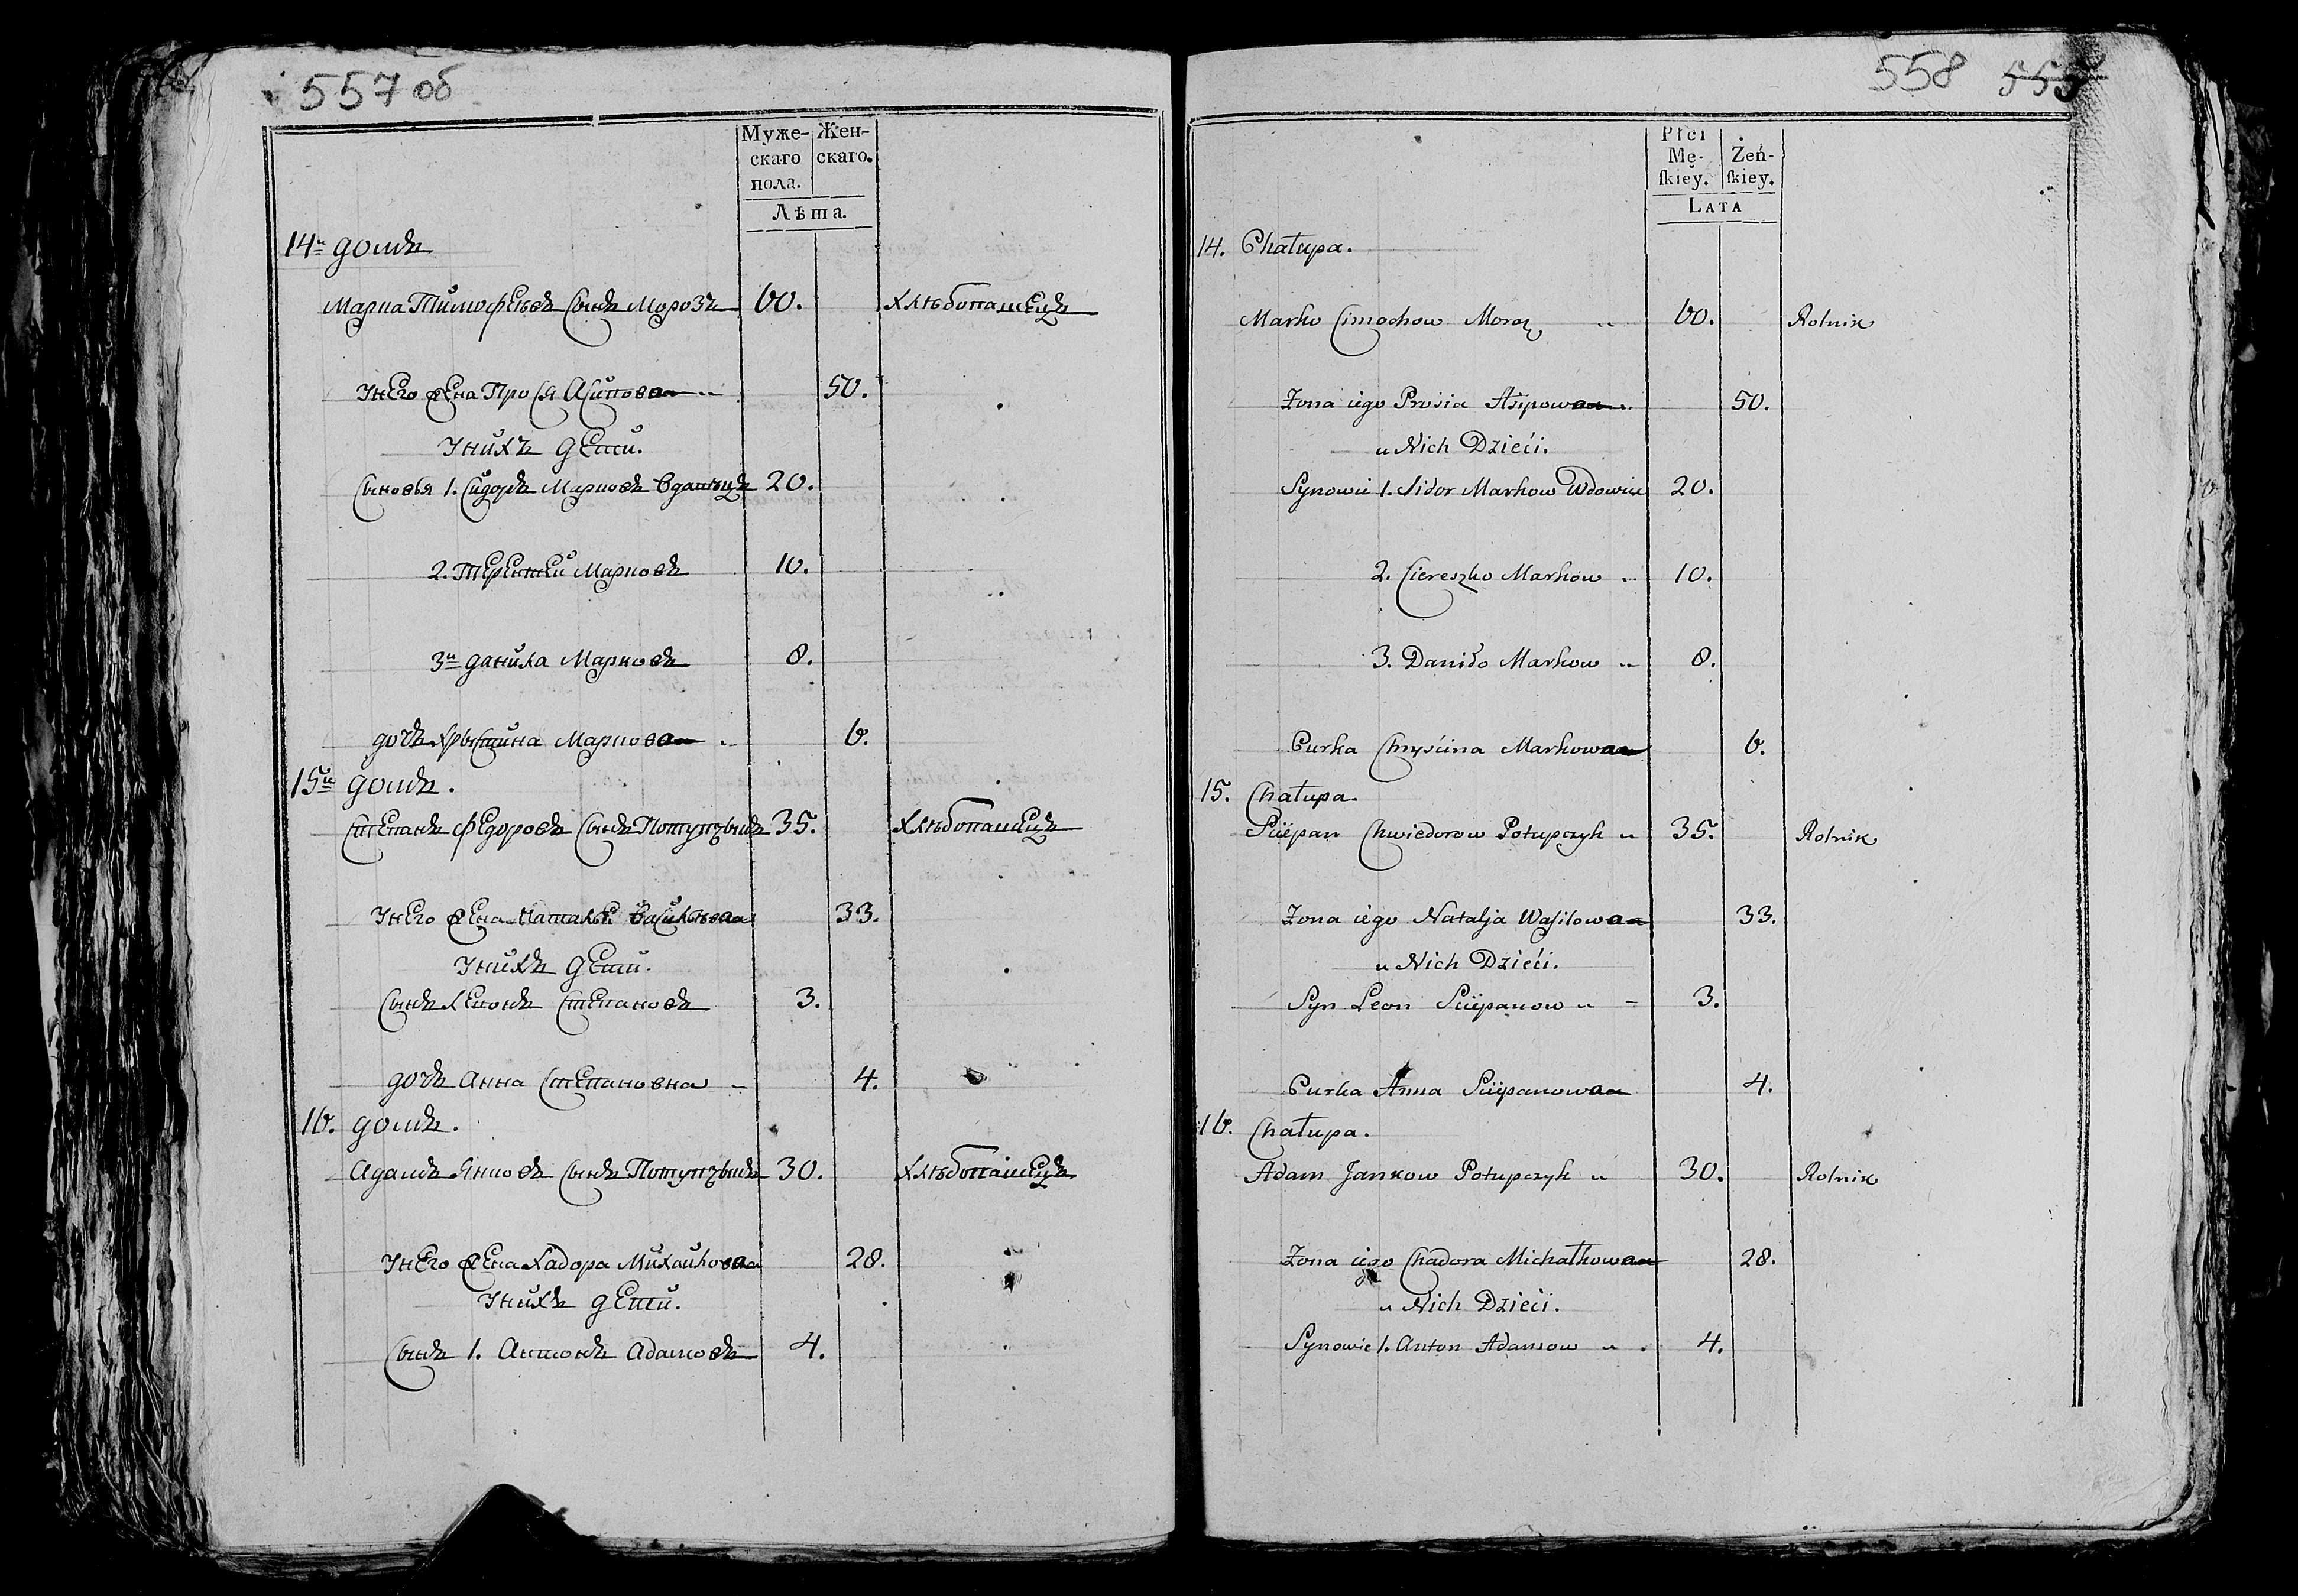 557 об
Муже- Жен-
скаго скаго.
пола.
Лѣта.
14й домъ
Марка Тимофеевъ Сынъ Морозъ 60. Хлѣбопашецъ
У него жена Прося Асипова 50.
У нихъ дети.
Сыновья 1. Сидоръ Марковъ вдовецъ 20.
2. Терентей Марковъ 10.
3й данила Марковъ 8.
дочь Хрыстина Маркова 6.
15й домъ.
Степанъ Федоровъ Сынъ Потупчыкъ 35. Хлѣбопашецъ
У него жена Наталья Васильева 33.
У нихъ дети.
Сынъ Левонъ Степановъ 3.
дочь анна Степановна 4.
16. домъ.
Адамъ Янковъ Сынъ Потупчыкъ 30. Хлѣбопашецъ
У него жена Хадора Михайлова 28.
У нихъ дети.
Сынъ 1. Антонъ Адамовъ 4.
558 555
Płci
Mę- Żeń-
ſkiey. ſkiey.
LATA
14. Chałupa.
Marko Cimochow Moroz 60. Rolnik
Żona iego Prosia Asipowa 50.
u Nich Dzieći.
Synowie 1. Sidor Markow Wdowiec 20.
2. Ciereszko Markow 10.
3. Daniło Markow 8.
Curka Chryścina Markowa 6.
15. Chałupa.
Sciepan Chwiedorow Potupczyk 35. Rolnik
Żona iego Natalja Wasilowa 33.
u Nich Dzieći.
Syn Leon Sciepanow 3.
Curka Anna Sciepanowa 4.
16. Chałupa.
Adam Jankow Potupczyk 30. Rolnik
Żona iego Chadora Michałkowa 28.
u Nich Dzieci.
Synowie 1. Anton Adamow 4.